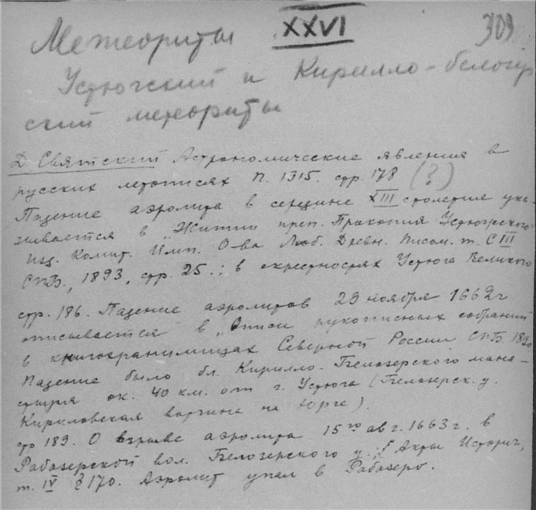 Метеориты XXVI 309
Устюгский и Кирилло-белозер
ский метеориты
Д. Святский Астрономические явления в
русских летописях П. 1915. стр. 178 (?)
Падение аэролита в середине XIII столетия ука-
зывается в „Житии преп. Прокопия Устюжского
Изд. Комит. Имп. О-ва Люб. Древн. Письм. т. CIII
СПБ., 1893, стр. 25.; в окрестностях Устюга Великого
стр. 186. Падение аэролитов 29 ноября 1662 г
описывается в „Описи рукописных собраний
в книгохранилищах Северной России СПБ.
Падение было бл. Кирилло-Белозерского мона-
стыря ок. 40 км. от г. Устюга (Белозерск. у.
Кириловская на Юрге).
стр 189. О взрыве аэролита 15го авг. 1663 г. в
Рабозерской вол. Белозерского у. „Акты Историч,
т. IV § 170. Аэролит упал в Рабозеро.